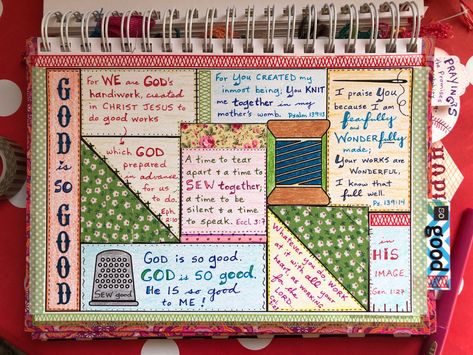 GOD is so GOOD
For WE are GOD's
handiwork, created
in CHRIST JESUS to
do good works
which GOD
prepared
in advance
for us
to do.
Eph
2:10
For You CREATED my
inmost being; You KNIT
me together in my
mother's womb. Psalm 139:13
I praise You
because I am
fearfully
and
WONDERfully
made;
Your WORKS are
WONDERFUL,
I know that
full well.
Ps. 139:14
A time to tear
apart & a time to
SEW together;
a time to be
silent & a time
to speak. Eccl. 3:7
GOD is so good.
GOD is so good.
He IS so good
to ME!
SEW good
Whatever you do, WORK
at it with all your
heart
for the
LORD
in
HIS
IMAGE
Gen. 1:27
PRAYING
the
so
good